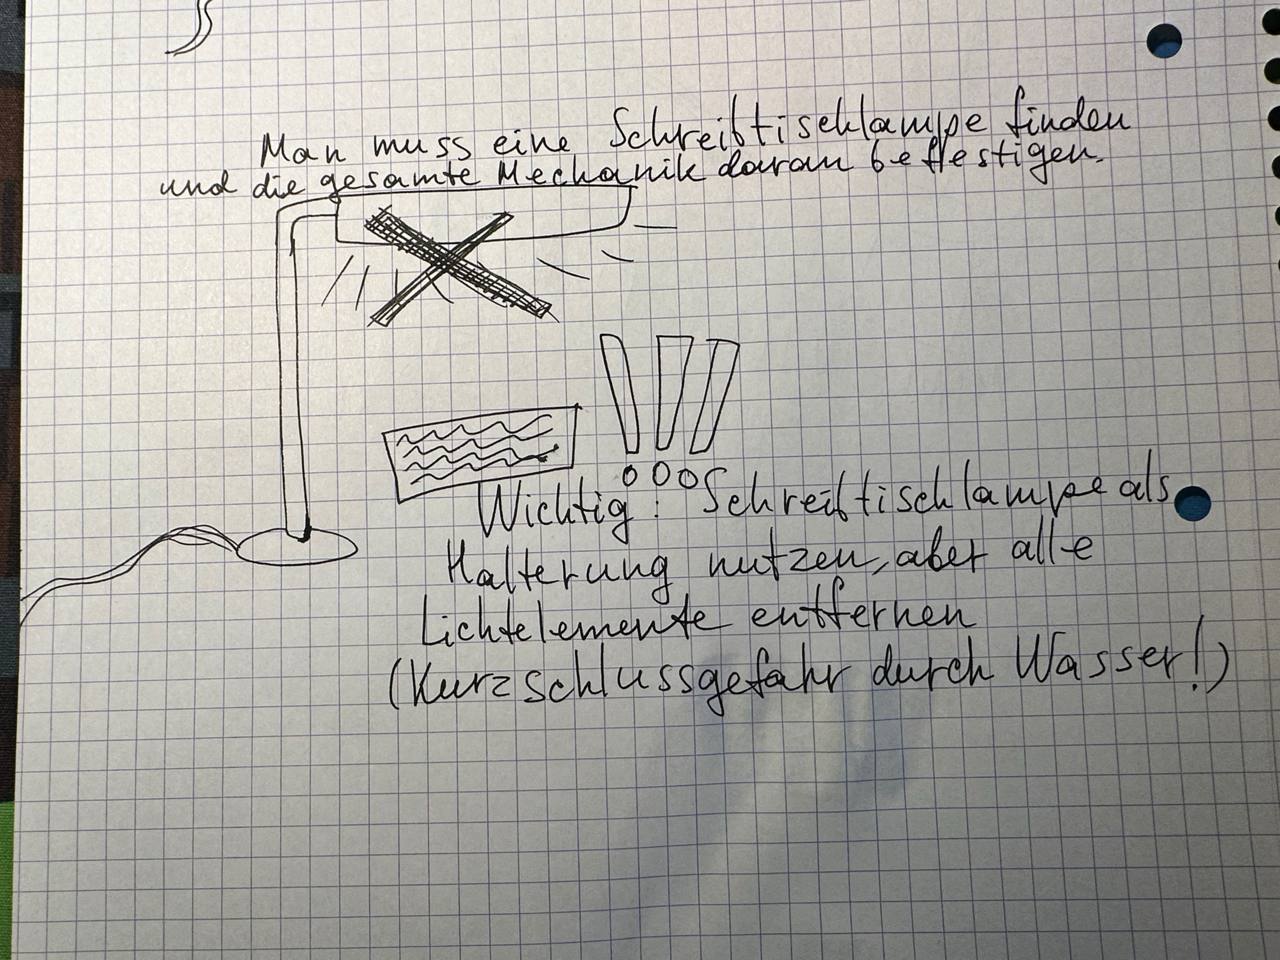 Man muss eine Schreibtischlampe finden
und die gesamte Mechanik daran befestigen.
Wichtig: Schreibtischlampe als
Halterung nutzen, aber alle
Lichtelemente entfernen
(Kurzschlussgefahr durch Wasser!)